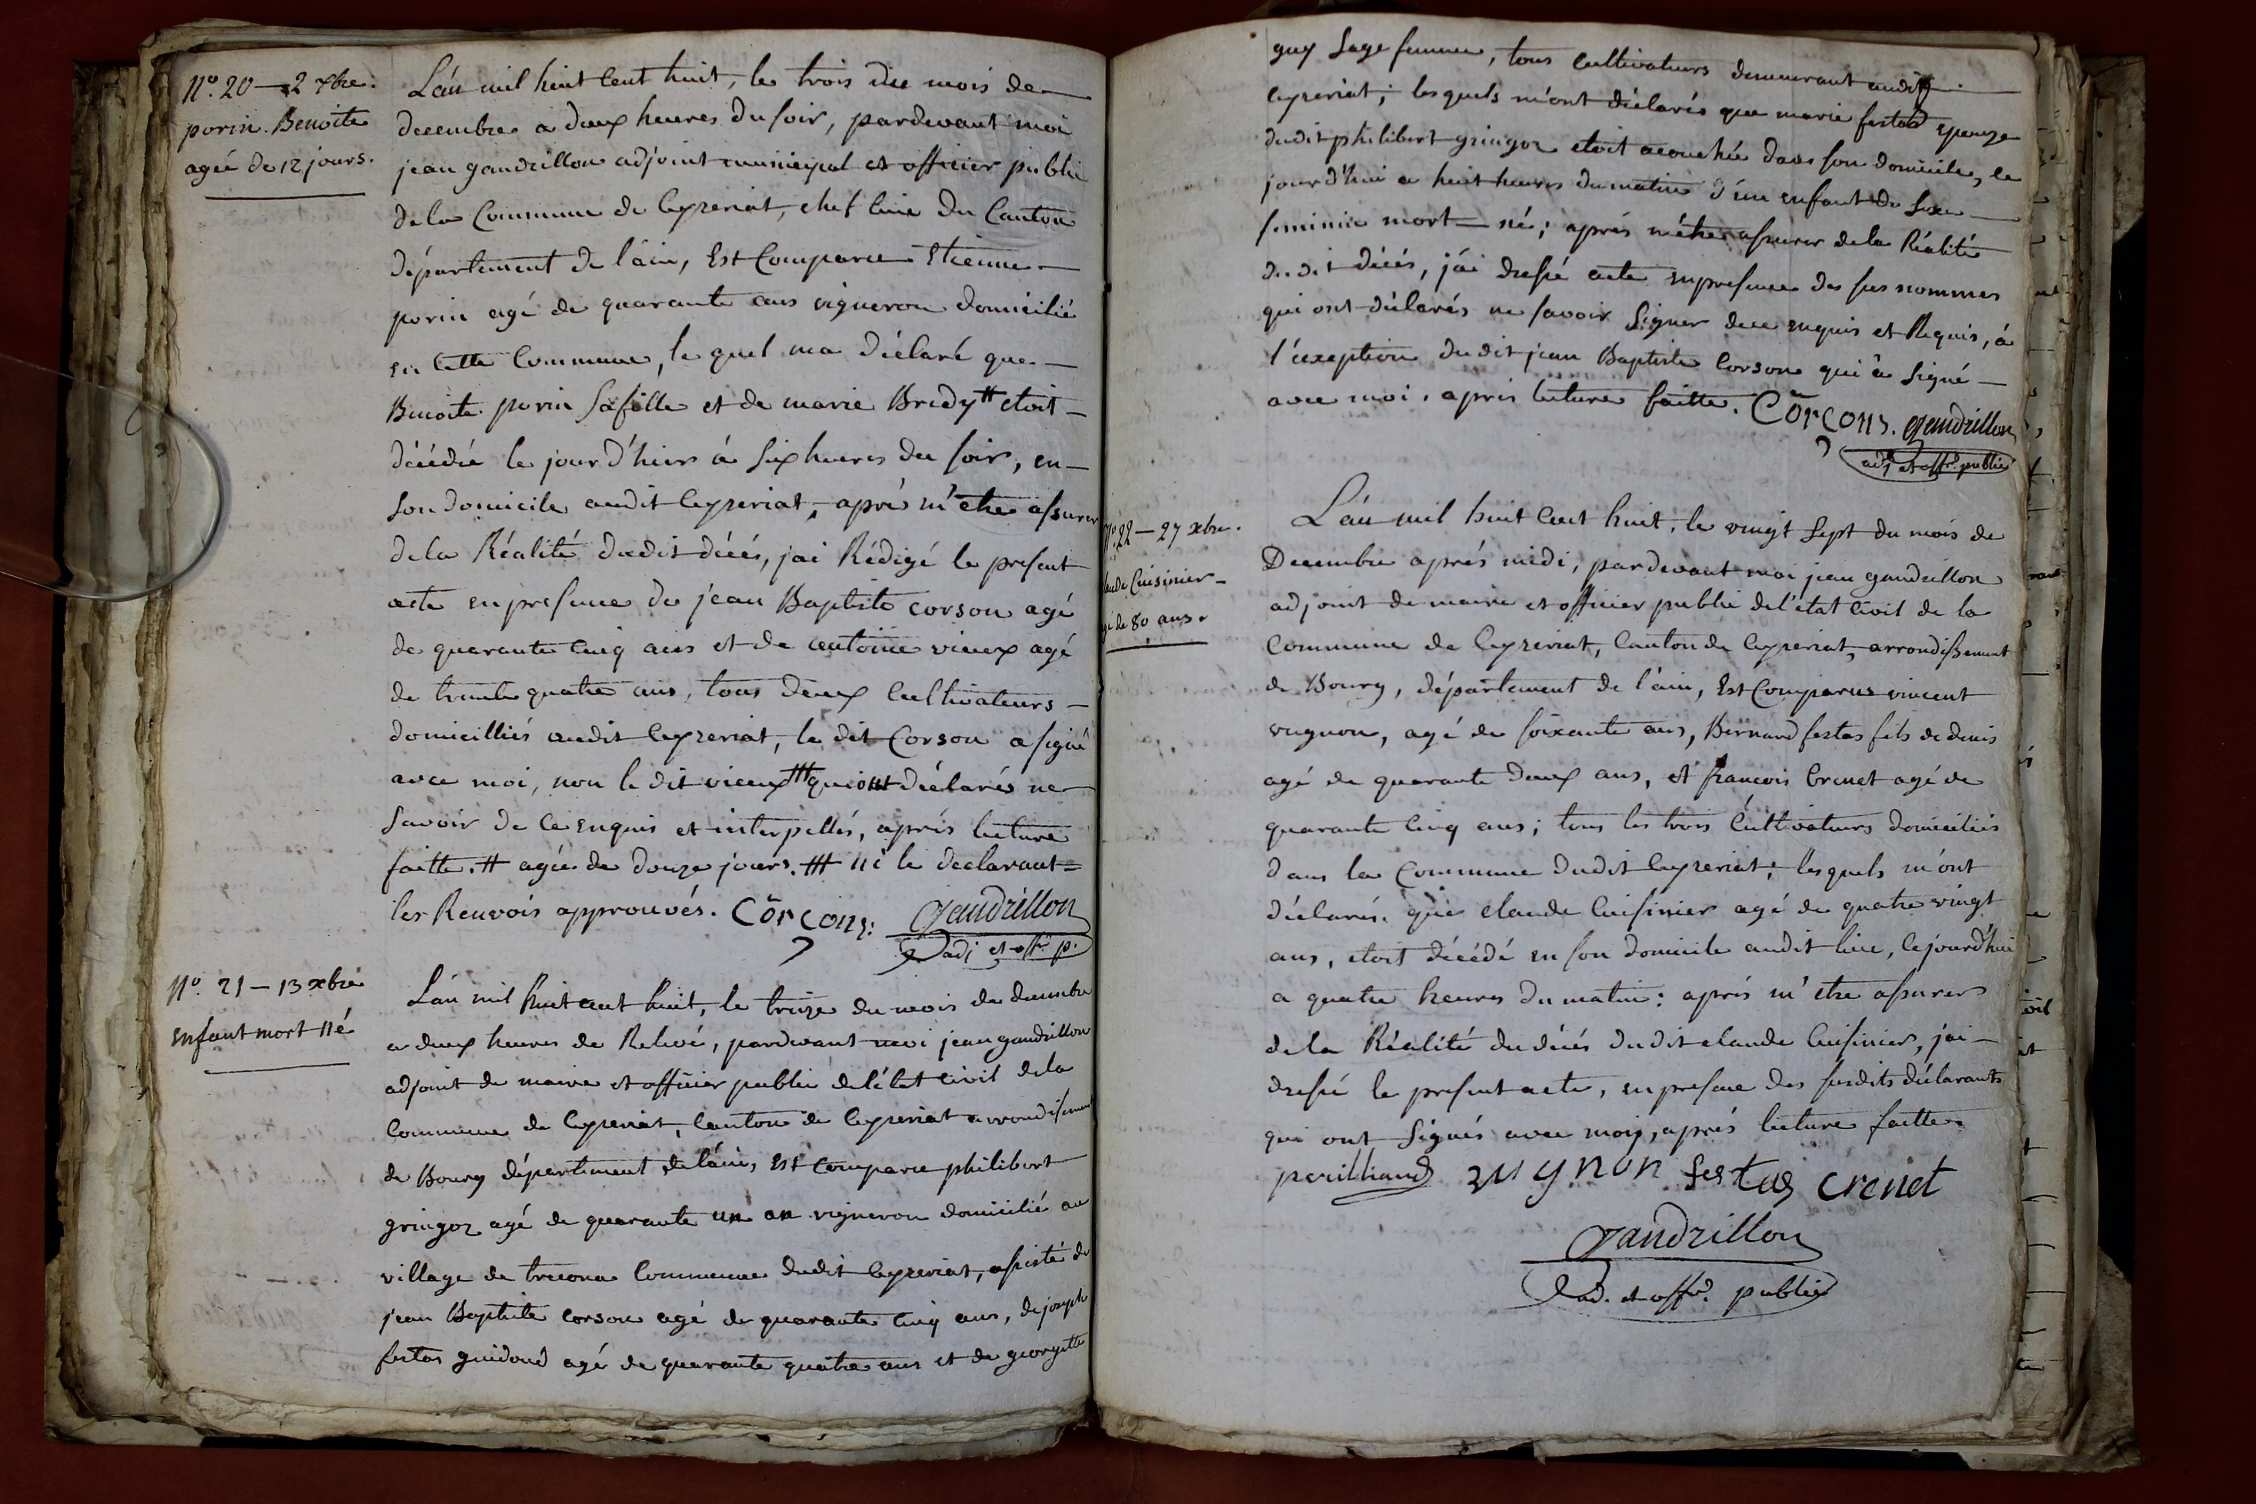 N.º 20 — 2 xbre.
porin Benoite
agée de 12 jours.
L'an mil huit cent huit, le trois du mois de
decembre a deux heures du soir, pardevant moi
jean gaudrillon adjoint municipal et officier public
de la Commune de Ceyzeriat, chef lieu du Canton
département de l'ain, Est Comparu Etienne
porin agé de quarante ans vigneron domicilié
en cette Commune, le quel m'a déclaré que
Benoite porin sa fille et de marie Bredy # etoit
décédée le jour d'hier à six heures du soir, en
son domicile audit Ceyzeriat, aprés m'etre assurer
de la Réalité dudit décés, j'ai Rédigé le present
acte en presence de jean Baptiste corson agé
de quarante cinq ans et de antoine vieux agé
de trente quatre ans, tous deux Cultivateurs
domicilliés audit Ceyzeriat, le dit Corson a signé
avec moi, non le dit vieux ## qui ont déclarés ne
savoir de ce enquis et interpellés, aprés lecture
faitte. # agée de douze jours. ## ni le declarant =
les Renvois approuvés. Corçon. Gaudrillon
adj et offr. p.
N.º 21 — 13 xbre
Enfant mort né
L'an mil huit cent huit, le treize du mois de decembre
a deux heures de Relevé, pardevant moi jean gaudrillon
adjoint de maire et officier public de l'état civil de la
Commune de Ceyzeriat, Canton de Ceyzeriat arrondisement
de Bourg département de l'ain, Est comparu philibert
gringoz agé de quarante un an vigneron domicilié au
village de treconna Commune dudit Ceyzeriat, assisté de
jean Baptiste corson agé de quarante cinq ans, de joseph
festas guidoud agé de quarante quatre ans et de georgette
guy sage femme, tous cultivateurs demeurant audit
Ceyzeriat; les quels m'ont déclarés que marie festas epouze
dudit philibert gringoz etoit acouchée dans son domicile, ce
jour d'hui a huit heures du matin d'un enfant du sexe
feminin mort-né; aprés m'etre assurer de la Réalité
du dit décés, j'ai dressé acte en presence des sus nommes
qui ont déclarés ne savoir Signer de ce enquis et Requis, à
l'exeption du dit jean Baptiste Corson qui a signé
avec moi, aprés lecture faitte. Corçon. gaudrillon
adj. et offr. public
N.º 22 — 27 xbre.
Cuisinier
de 80 ans.
L'an mil huit cent huit, le vingt sept du mois de
Decembre aprés midi, pardevant moi jean gaudrillon
adjoint de maire et officier public de l'état civil de la
Commune de Ceyzeriat, Canton de Ceyzeriat, arrondissement
de Bourg, département de l'ain, Est Comparus vincent
vugnon, agé de soixante ans, Bernard festas fils de denis
agé de quarante deux ans, et francois Crenet agé de
quarante cinq ans; tous les trois Cultivateurs domiciliés
dans la Commune dudit Ceyzeriat; lesquels m'ont
déclarés que claude Cuisinier agé de quatre vingt
ans, etoit décédé en son domicile audit lieu, cejourd'hui
a quatre heures du matin: aprés m'etre assurer
de la Réalité du décés dudit claude Cuisinier, j'ai
dressé le present acte, en presence des susdits déclarants
qui ont Signés avec moy, aprés lecture faitte.
vugnon festas crenet
Gaudrillon
ad. et offr. public